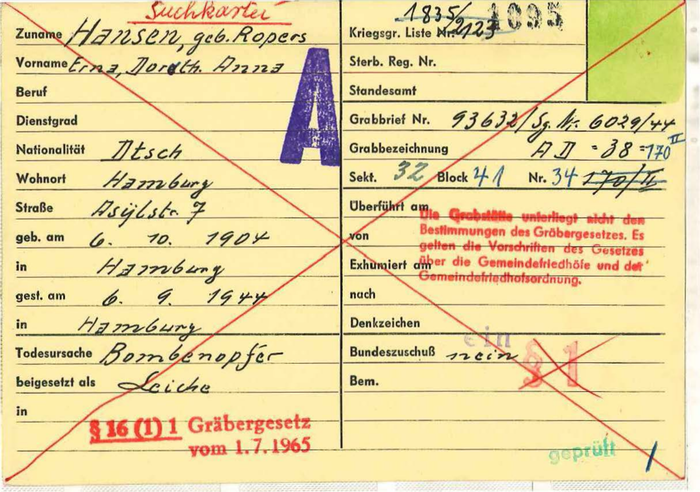 Suchkartei
Zuname Hansen, geb. Ropers
Vorname Erna, Doroth. Anna
Beruf
Dienstgrad
Nationalität Dtsch
Wohnort Hamburg
Straße Asylstr. 7
geb. am 6. 10. 1904
in Hamburg
gest. am 6. 9. 1944
in Hamburg
Todesursache Bombenopfer
beigesetzt als Leiche
in
§ 16 (1) 1 Gräbergesetz
vom 1.7.1965
A
1835/2123 1095
Kriegsgr. Liste Nr.
Sterb. Reg. Nr.
Standesamt
Grabbrief Nr. 93632/Sg. Nr. 6029/44
Grabbezeichnung AD = 38 = 170 II
Sekt. 32 Block 41 Nr. 34 170/II
Überführt am
von
Exhumiert am
nach
Die Grabstätte unterliegt nicht den
Bestimmungen des Gräbergesetzes. Es
gelten die Vorschriften des Gesetzes
über die Gemeindefriedhöfe und der
Gemeindefriedhofsordnung.
Denkzeichen
ein
Bundeszuschuß nein
§ 1
Bem.
geprüft